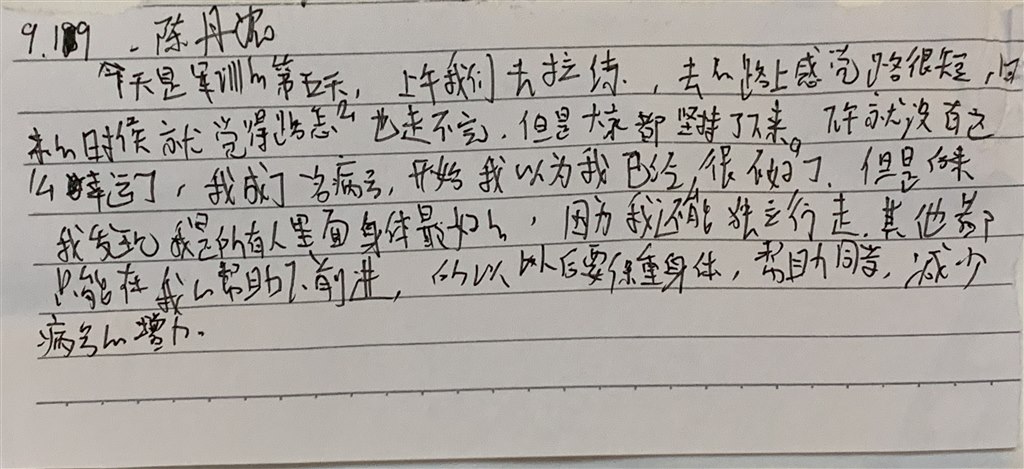 9.19 陈丹
今天是军训的第五天，上午我们去拉练，去的路上感觉路很短，回
来的时候就觉得路怎么也走不完，但是大家都坚持了下来。下午就没有这
么幸运了，我成了名病号，开始我以为我已经很不好了，但是后来
我发现我是所有人里面身体最好的，因为我还能独立行走，其他都
只能在我的帮助下前进，所以以后要保重身体，帮助同学，减少
病号的增加。